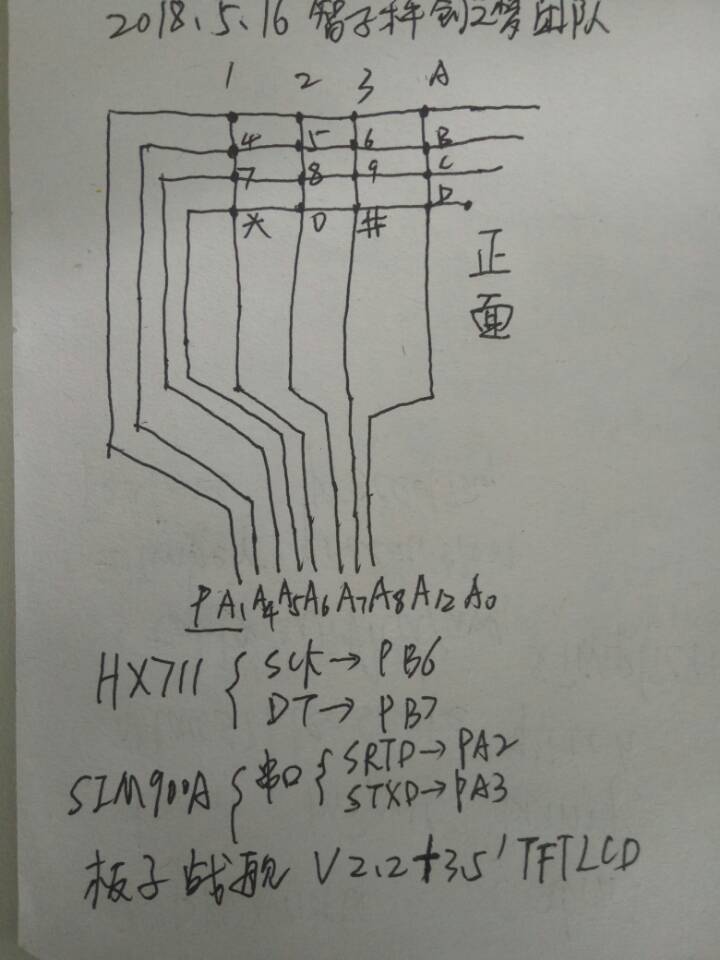 2018.5.16 智子科创之梦团队
1 2 3 A
4 5 6 B
7 8 9 C
* 0 # D
正面
PA1 A4 A5 A6 A7 A8 A12 A0
HX711 { SCK→PB6
DT→PB7
SIM900A { 串口 { SRTD→PA2
STXD→PA3
板子战舰 V2.2+3.5' TFTLCD